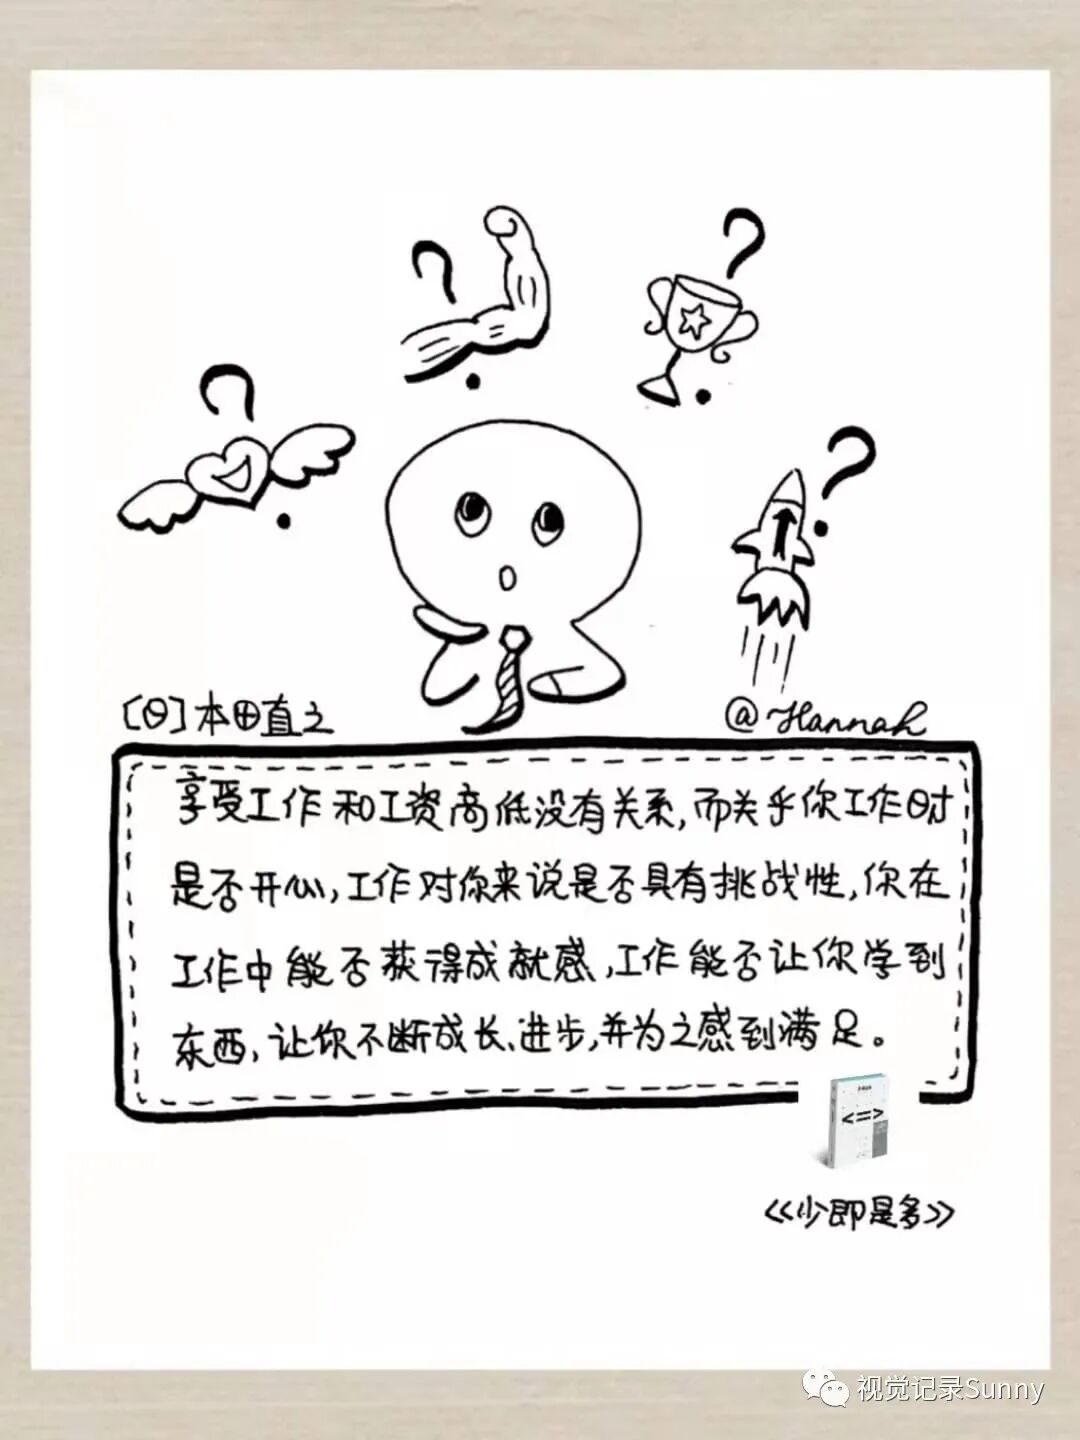 ?
?
?
?
[日]本田直之
@Hannah
享受工作和工资高低没有关系,而关乎你工作时
是否开心,工作对你来说是否具有挑战性,你在
工作中能否获得成就感,工作能否让你学到
东西,让你不断成长、进步,并为之感到满足。
<=>
《少即是多》
视觉记录Sunny